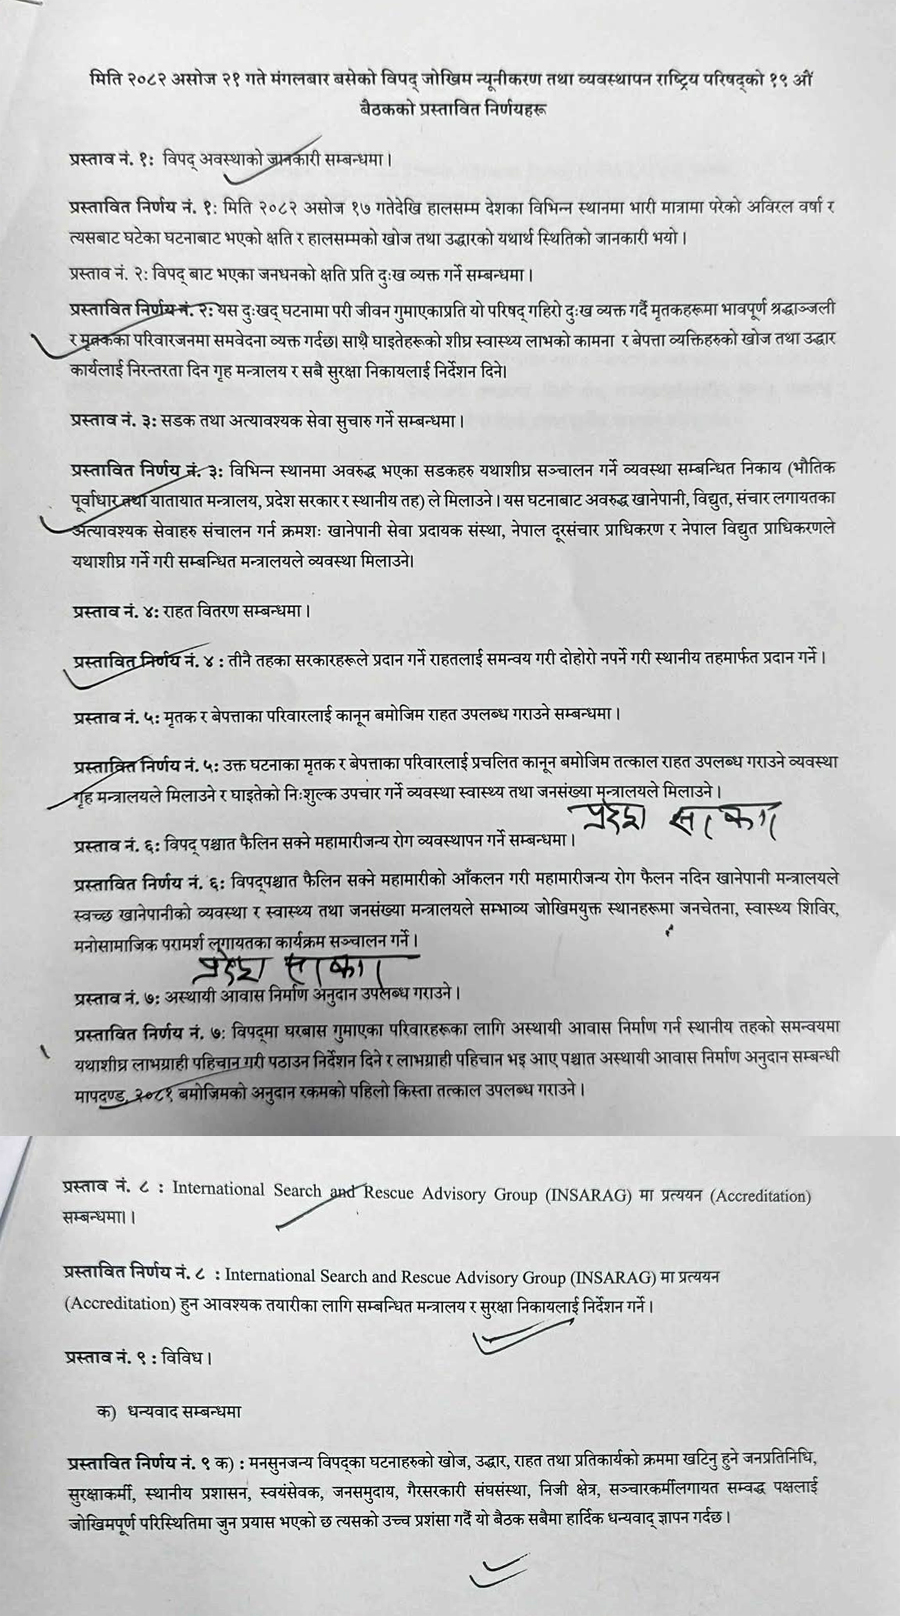 मिति २०८२ असोज २१ गते मंगलबार बसेको विपद् जोखिम न्यूनीकरण तथा व्यवस्थापन राष्ट्रिय परिषद्को १९ औं
बैठकको प्रस्तावित निर्णयहरू
प्रस्ताव नं. १: विपद् अवस्थाको जानकारी सम्बन्धमा ।
प्रस्तावित निर्णय नं. १: मिति २०८२ असोज १७ गतेदेखि हालसम्म देशका विभिन्न स्थानमा भारी मात्रामा परेको अविरल वर्षा र
त्यसबाट घटेका घटनाबाट भएको क्षति र हालसम्मको खोज तथा उद्धारको यथार्थ स्थितिको जानकारी भयो ।
प्रस्ताव नं. २: विपद् बाट भएका जनधनको क्षति प्रति दुःख व्यक्त गर्ने सम्बन्धमा ।
प्रस्तावित निर्णय नं. २: यस दुःखद् घटनामा परी जीवन गुमाएकाप्रति यो परिषद् गहिरो दुःख व्यक्त गर्दै मृतकहरूमा भावपूर्ण श्रद्धाञ्जली
र मृतकका परिवारजनमा समवेदना व्यक्त गर्दछ। साथै घाइतेहरूको शीघ्र स्वास्थ्य लाभको कामना र बेपत्ता व्यक्तिहरुको खोज तथा उद्धार
कार्यलाई निरन्तरता दिन गृह मन्त्रालय र सबै सुरक्षा निकायलाई निर्देशन दिने।
प्रस्ताव नं. ३: सडक तथा अत्यावश्यक सेवा सुचारु गर्ने सम्बन्धमा ।
प्रस्तावित निर्णय नं. ३: विभिन्न स्थानमा अवरुद्ध भएका सडकहरु यथाशीघ्र सञ्चालन गर्ने व्यवस्था सम्बन्धित निकाय (भौतिक
पूर्वाधार तथा यातायात मन्त्रालय, प्रदेश सरकार र स्थानीय तह) ले मिलाउने । यस घटनाबाट अवरुद्ध खानेपानी, विद्युत, संचार लगायतका
अत्यावश्यक सेवाहरु संचालन गर्न क्रमशः खानेपानी सेवा प्रदायक संस्था, नेपाल दूरसंचार प्राधिकरण र नेपाल विद्युत प्राधिकरणले
यथाशीघ्र गर्ने गरी सम्बन्धित मन्त्रालयले व्यवस्था मिलाउने।
प्रस्ताव नं. ४: राहत वितरण सम्बन्धमा ।
प्रस्तावित निर्णय नं. ४ : तीनै तहका सरकारहरूले प्रदान गर्ने राहतलाई समन्वय गरी दोहोरो नपर्ने गरी स्थानीय तहमार्फत प्रदान गर्ने ।
प्रस्ताव नं. ५: मृतक र बेपत्ताका परिवारलाई कानून बमोजिम राहत उपलब्ध गराउने सम्बन्धमा ।
प्रस्तावित निर्णय नं. ५: उक्त घटनाका मृतक र बेपत्ताका परिवारलाई प्रचलित कानून बमोजिम तत्काल राहत उपलब्ध गराउने व्यवस्था
गृह मन्त्रालयले मिलाउने र घाइतेको निःशुल्क उपचार गर्ने व्यवस्था स्वास्थ्य तथा जनसंख्या मन्त्रालयले मिलाउने ।
प्रदेश सरकार
प्रस्ताव नं. ६: विपद् पश्चात फैलिन सक्ने महामारीजन्य रोग व्यवस्थापन गर्ने सम्बन्धमा ।
प्रस्तावित निर्णय नं. ६: विपद्पश्चात फैलिन सक्ने महामारीको आँकलन गरी महामारीजन्य रोग फैलन नदिन खानेपानी मन्त्रालयले
स्वच्छ खानेपानीको व्यवस्था र स्वास्थ्य तथा जनसंख्या मन्त्रालयले सम्भाव्य जोखिमयुक्त स्थानहरूमा जनचेतना, स्वास्थ्य शिविर,
मनोसामाजिक परामर्श लगायतका कार्यक्रम सञ्चालन गर्ने ।
प्रदेश सरकार
प्रस्ताव नं. ७: अस्थायी आवास निर्माण अनुदान उपलब्ध गराउने ।
प्रस्तावित निर्णय नं. ७: विपद्मा घरबास गुमाएका परिवारहरूका लागि अस्थायी आवास निर्माण गर्न स्थानीय तहको समन्वयमा
यथाशीघ्र लाभग्राही पहिचान गरी पठाउन निर्देशन दिने र लाभग्राही पहिचान भइ आए पश्चात अस्थायी आवास निर्माण अनुदान सम्बन्धी
मापदण्ड, २०८१ बमोजिमको अनुदान रकमको पहिलो किस्ता तत्काल उपलब्ध गराउने ।
प्रस्ताव नं. ८ : International Search and Rescue Advisory Group (INSARAG) मा प्रत्ययन (Accreditation)
सम्बन्धमा। ।
प्रस्तावित निर्णय नं. ८ : International Search and Rescue Advisory Group (INSARAG) मा प्रत्ययन
(Accreditation) हुन आवश्यक तयारीका लागि सम्बन्धित मन्त्रालय र सुरक्षा निकायलाई निर्देशन गर्ने ।
प्रस्ताव नं. ९ : विविध ।
क) धन्यवाद सम्बन्धमा
प्रस्तावित निर्णय नं. ९ क) : मनसुनजन्य विपद्का घटनाहरुको खोज, उद्धार, राहत तथा प्रतिकार्यको क्रममा खटिनु हुने जनप्रतिनिधि,
सुरक्षाकर्मी, स्थानीय प्रशासन, स्वयंसेवक, जनसमुदाय, गैरसरकारी संघसंस्था, निजी क्षेत्र, सञ्चारकर्मीलगायत सम्वद्ध पक्षलाई
जोखिमपूर्ण परिस्थितिमा जुन प्रयास भएको छ त्यसको उच्च प्रशंसा गर्दै यो बैठक सबैमा हार्दिक धन्यवाद् ज्ञापन गर्दछ ।